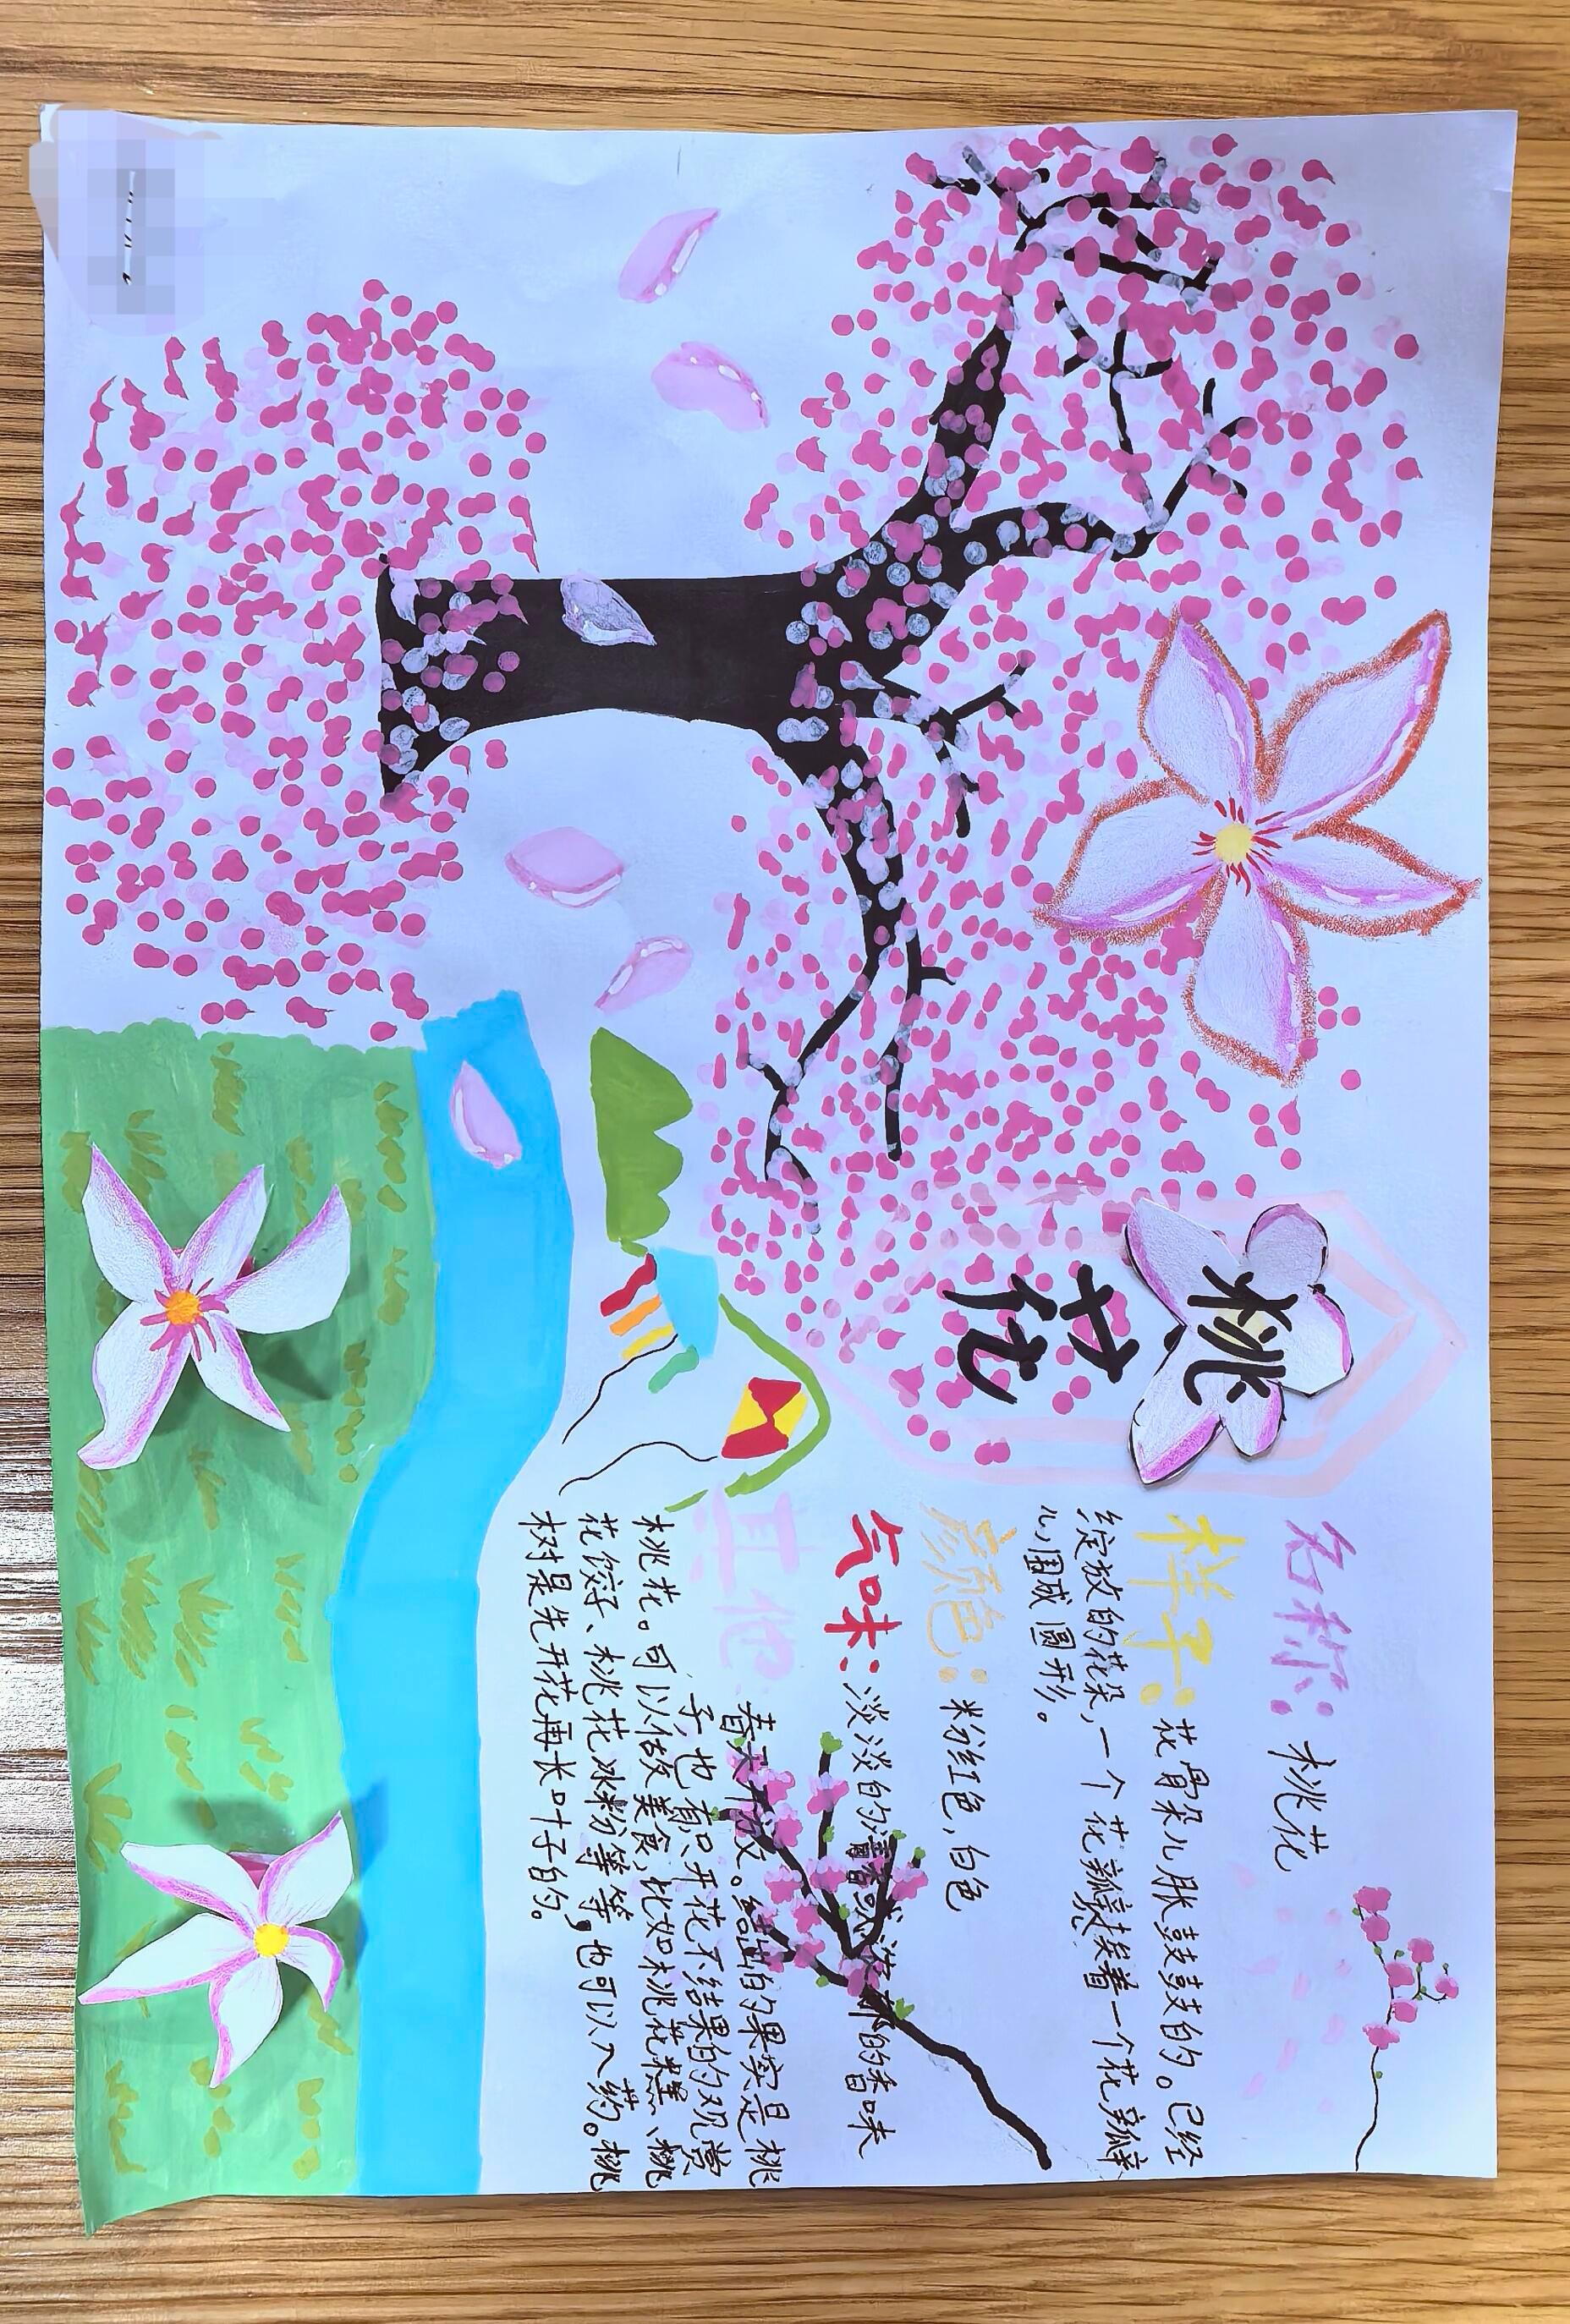 桃花
名称：桃花
样子：花骨朵儿胀鼓鼓的。已经
绽放的花朵，一个花瓣儿挨着一个花瓣
儿，围成圆形。
颜色：粉红色，白色
气味：淡淡的清香味 的香味
其他：春天开放。结出的果实是桃
子，也有只开花不结果的观赏
桃花。可以做美食，比如桃花糕、桃
花饺子、桃花冰粉等等，也可以入药。桃
树是先开花再长叶子的。